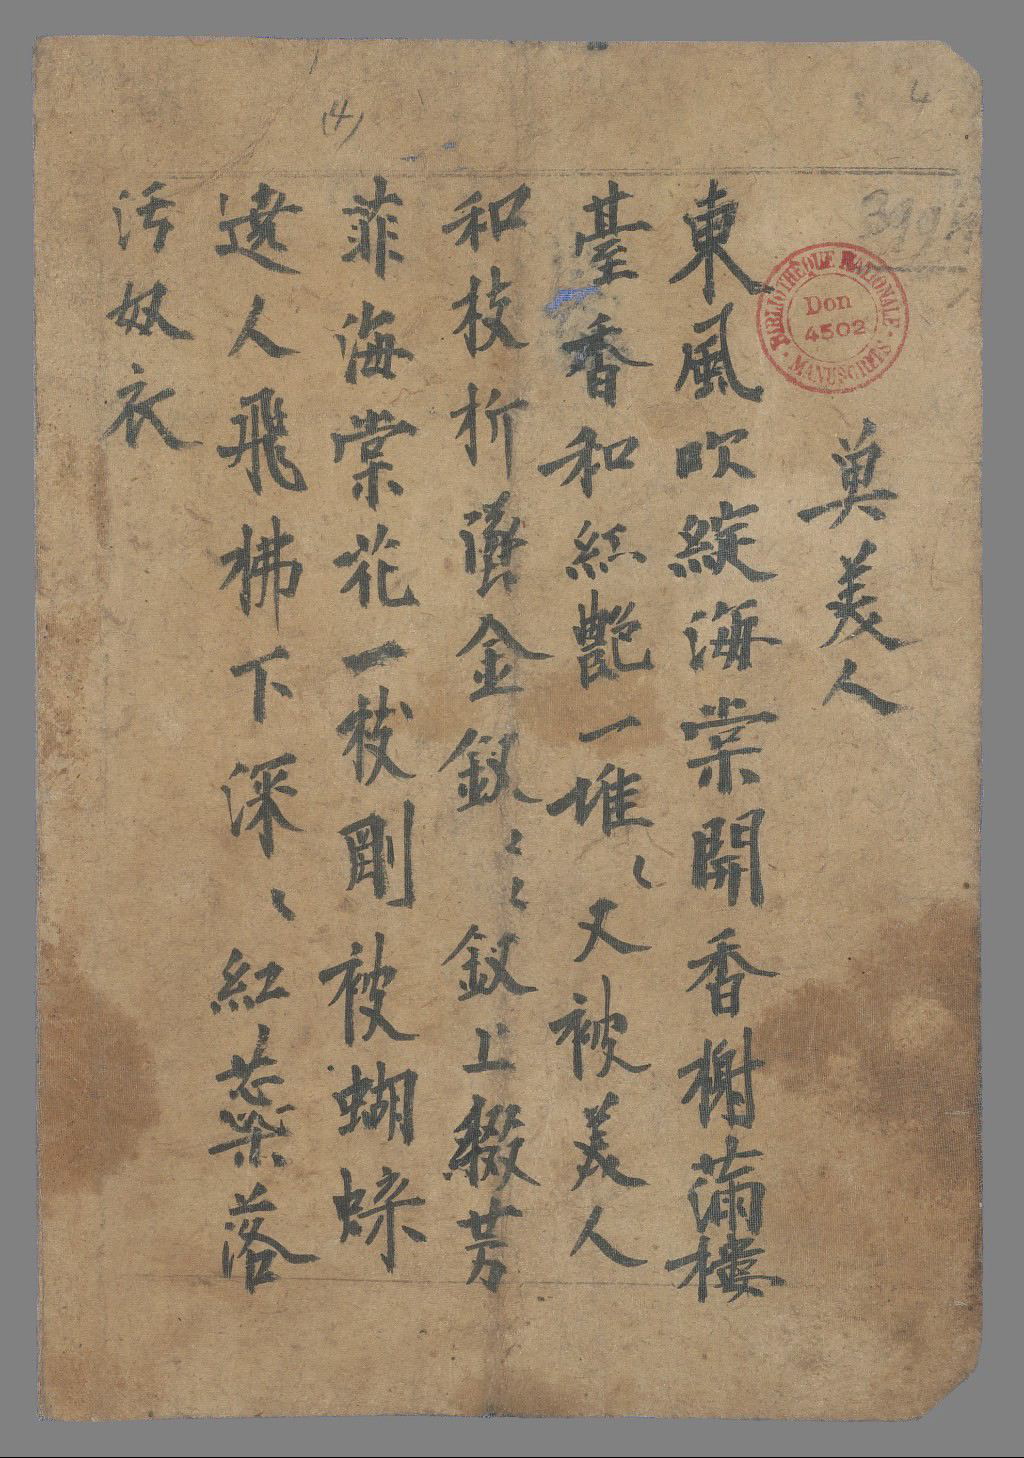 (4)
4
399
BIBLIOTHEQUE NATIONALE
Don
4502
MANUSCRITS
美人
東風吹綻海棠開香榭滿樓
臺香和紅艷一堆〻又被美人
和枝折墜金釵〻〻釵上綴芳
菲海棠花一枝剛被蝴蝶
遶人飛拂下深〻紅蕊落
污奴衣